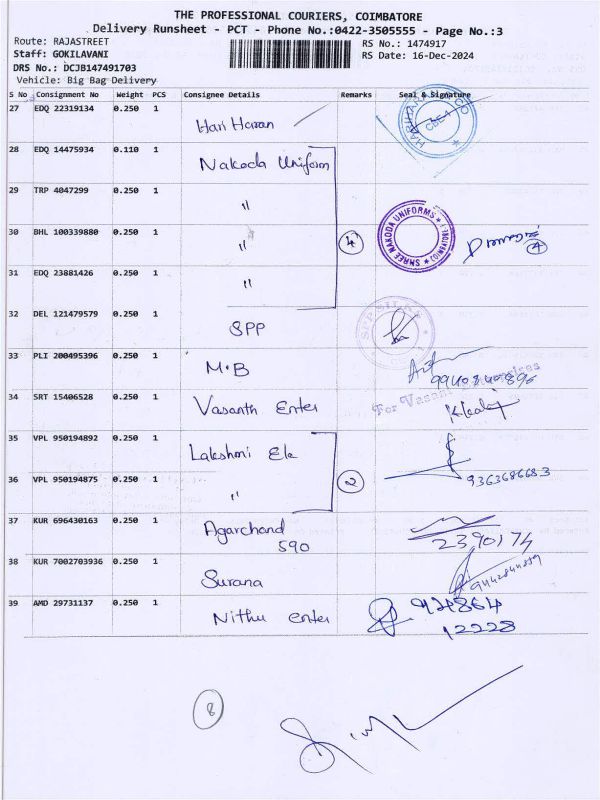 THE PROFESSIONAL COURIERS, COIMBATORE
Delivery Runsheet - PCT - Phone No.:0422-3505555 - Page No.:3
Route: RAJASTREET
RS No.: 1474917
Staff: GOKILAVANI
RS Date: 16-Dec-2024
DRS No.: DCJB147491703
Vehicle: Big Bag Delivery
S No Consignment No Weight PCS Consignee Details Remarks Seal & Signature
27 EDQ 22319134 0.250 1 Hari Haran
28 EDQ 14475934 0.110 1 Nakoda Uniform
29 TRP 4047299 0.250 1 "
30 BHL 100339880 0.250 1 " 4 SHREE NAKODA UNIFORMS 4
31 EDQ 23881426 0.250 1 "
32 DEL 121479579 0.250 1 SPP
33 PLI 200495396 0.250 1 M.B
34 SRT 15406528 0.250 1 Vasanth Enter For Vasan
35 VPL 950194892 0.250 1 Lakshmi Ele
36 VPL 950194875 0.250 1 " 2 9363686683
37 KUR 696430163 0.250 1 Agarchand 590 2390174
38 KUR 7002703936 0.250 1 Surana
39 AMD 29731137 0.250 1 Nithu enter 94864
12228
8